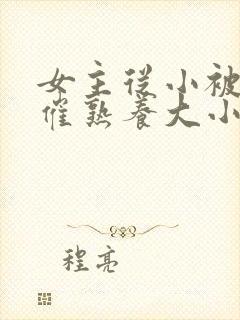 女主从小被
催熟养大小
程亮